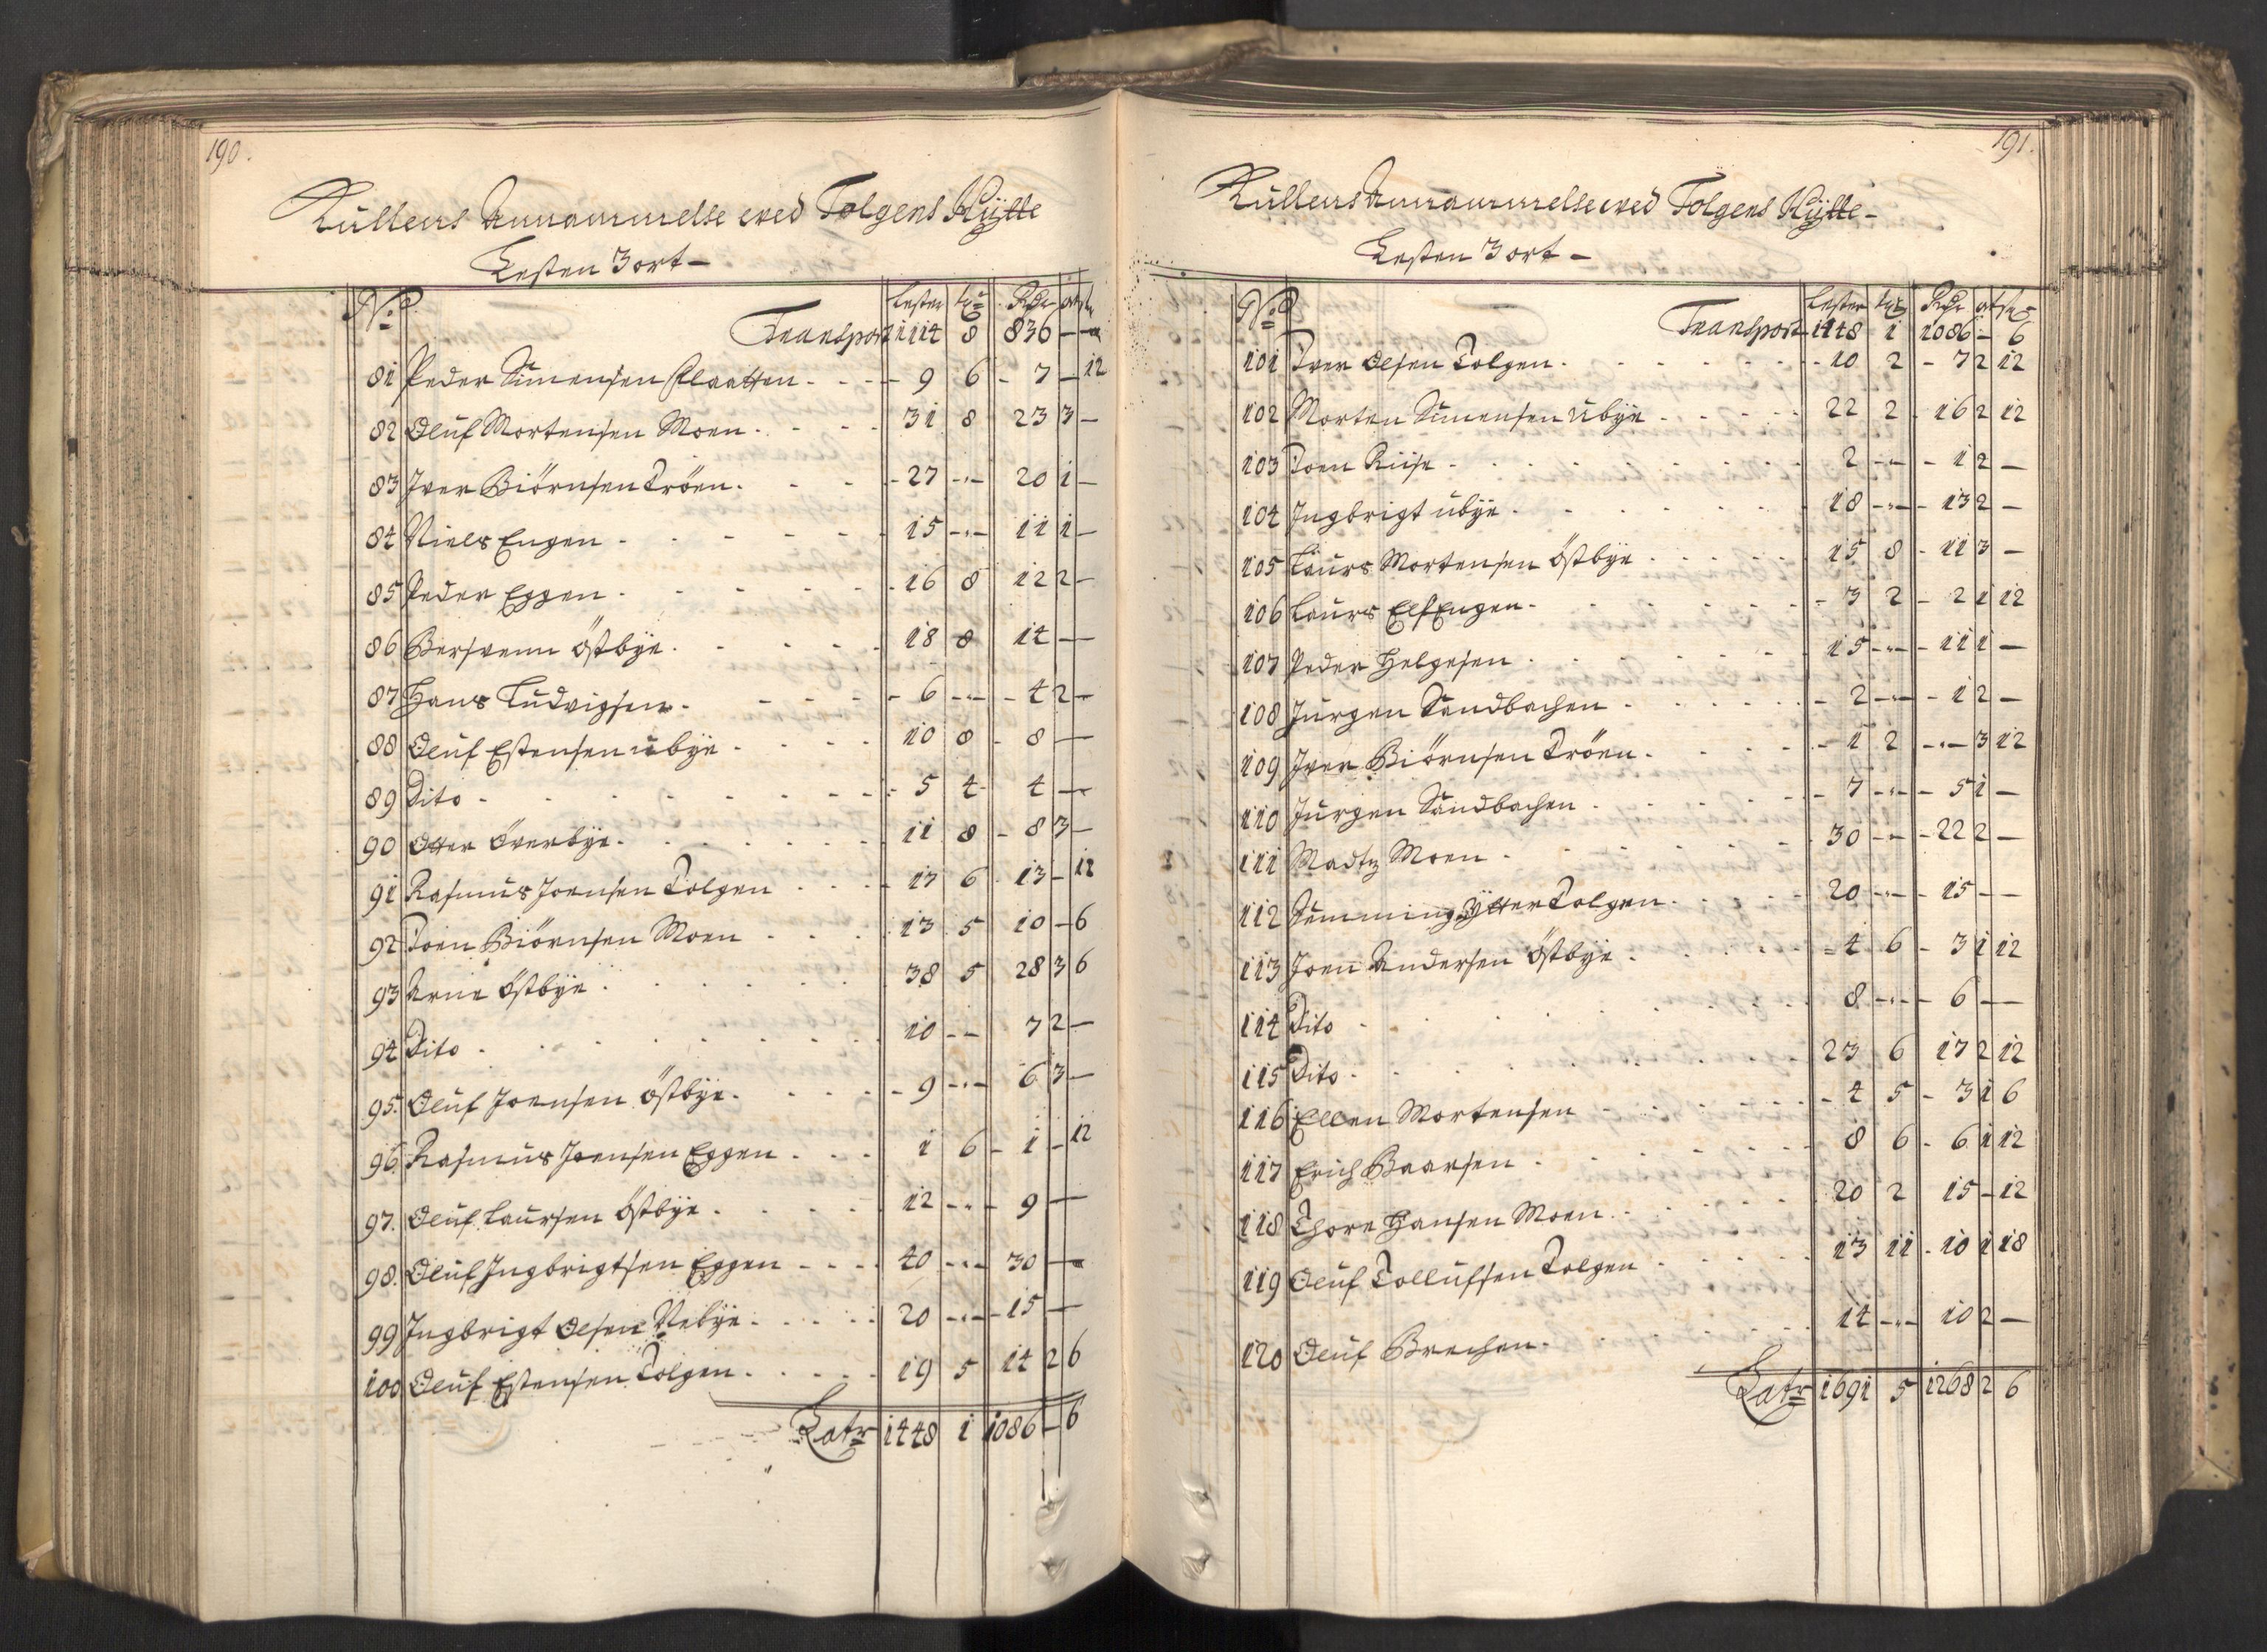 190.
Kullens Annammelse wed Tolgens Hÿtte
Lesten 3 ort -
No Lester tr Rdr ort sk
Transport 1114 8 836 - -
81 Peder Simensen Plaatten - 9 6 - 7 - 12
82 Oluf Mortensen Moen 31 8 23 3 -
83 Iver Biörnsen Tröen - 27 - 20 1 -
84 Niels Engen 15 - 11 1 -
85 Peder Eggen 16 8 12 2 -
86 Bersvenn Östbÿe 18 8 14 -
87 Hans Ludvigsen - 6 - - 4 2 -
88 Oluf Estensen übÿe 10 8 - 8 -
89 Dito 5 4 4 -
90 Otter Överbÿe 11 8 - 8 3 -
91 Rasmus Joensen Tolgen 17 6 13 - 12
92 Joen Biörnsen Moen 13 5 10 - 6
93 Arne Östbÿe 38 5 28 3 6
94 Dito 10 - 7 2 -
95. Oluf Joensen Östbÿe - 9 - 6 3 -
96. Rasmus Joensen Eggen 1 6 - 1 - 12
97. Oluf Laursen Östbÿe 12 - - 9 -
98. Oluf Ingbrigtsen Eggen 40 - 30 -
99 Ingbrigt Olsen Nebÿe 20 - - 15 -
100 Oluf Estensen Tolgen 19 5 14 2 6
Latr 1448 1 1086 - 6
191.
Kullens Annammelse wed Tolgens Hÿtte -
Lesten 3 ort -
No Lester tr Rdr ort sk
Transport 1448 1 1086 - 6
101 Iver Olsen Tolgen - 10 2 - 7 2 12
102 Morten Simensen übÿe 22 2 - 16 2 12
103 Joen Riise 2 - - 1 2 -
104 Ingbrigt übÿe 18 - - 13 2 -
105 Laurs Mortensen Östbÿe 15 8 - 11 3 -
106 Laurs ElfEngen - 3 2 - 2 1 12
107 Peder Helgesen 15 - - 11 1 -
108 Jürgen Sandbachen - 2 - - 1 2 -
109 Iver Biörnsen Tröen - 1 2 - - 3 12
110 Jürgen Sandbachen - 7 - - 5 1 -
111 Madtz Moen 30 - - 22 2 -
112 Simming Ÿtter Tolgen 20 - - 15 - -
113 Joen Andersen Östbÿe - 4 6 - 3 1 12
114 Dito 8 - - 6 - -
115 Dito 23 6 17 2 12
116 Ellen Mortensen - 4 5 - 3 1 6
117 Erich Baarsen 8 6 - 6 1 12
118 Thore Hansen Moen 20 2 15 - 12
119 Oluf Tollufsen Tolgen 13 11 - 10 1 18
120 Oluf Brechen 14 - 10 2 -
Latr 1691 5 1268 2 6